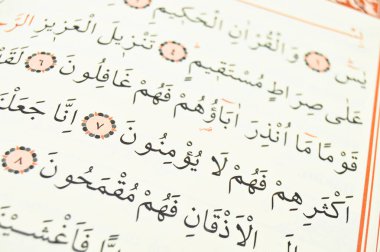 يٰسٓ ﴿١﴾ وَالْقُرْاٰنِ الْحَكِيمِ
عَلٰى صِرَاطٍ مُسْتَقِيمٍ ﴿٤﴾ تَنْزِيلَ الْعَزِيزِ الرَّحِيمِ
قَوْمًا مَٓا اُنْذِرَ اٰبَٓاؤُ۬هُمْ فَهُمْ غَافِلُونَ ﴿٦﴾ لَقَدْ
اَكْثَرِهِمْ فَهُمْ لَا يُؤْمِنُونَ ﴿٧﴾ اِنَّا جَعَلْنَا
الْاَذْقَانِ فَهُمْ مُقْمَحُونَ ﴿٨﴾
فَاَغْشَيْنَا